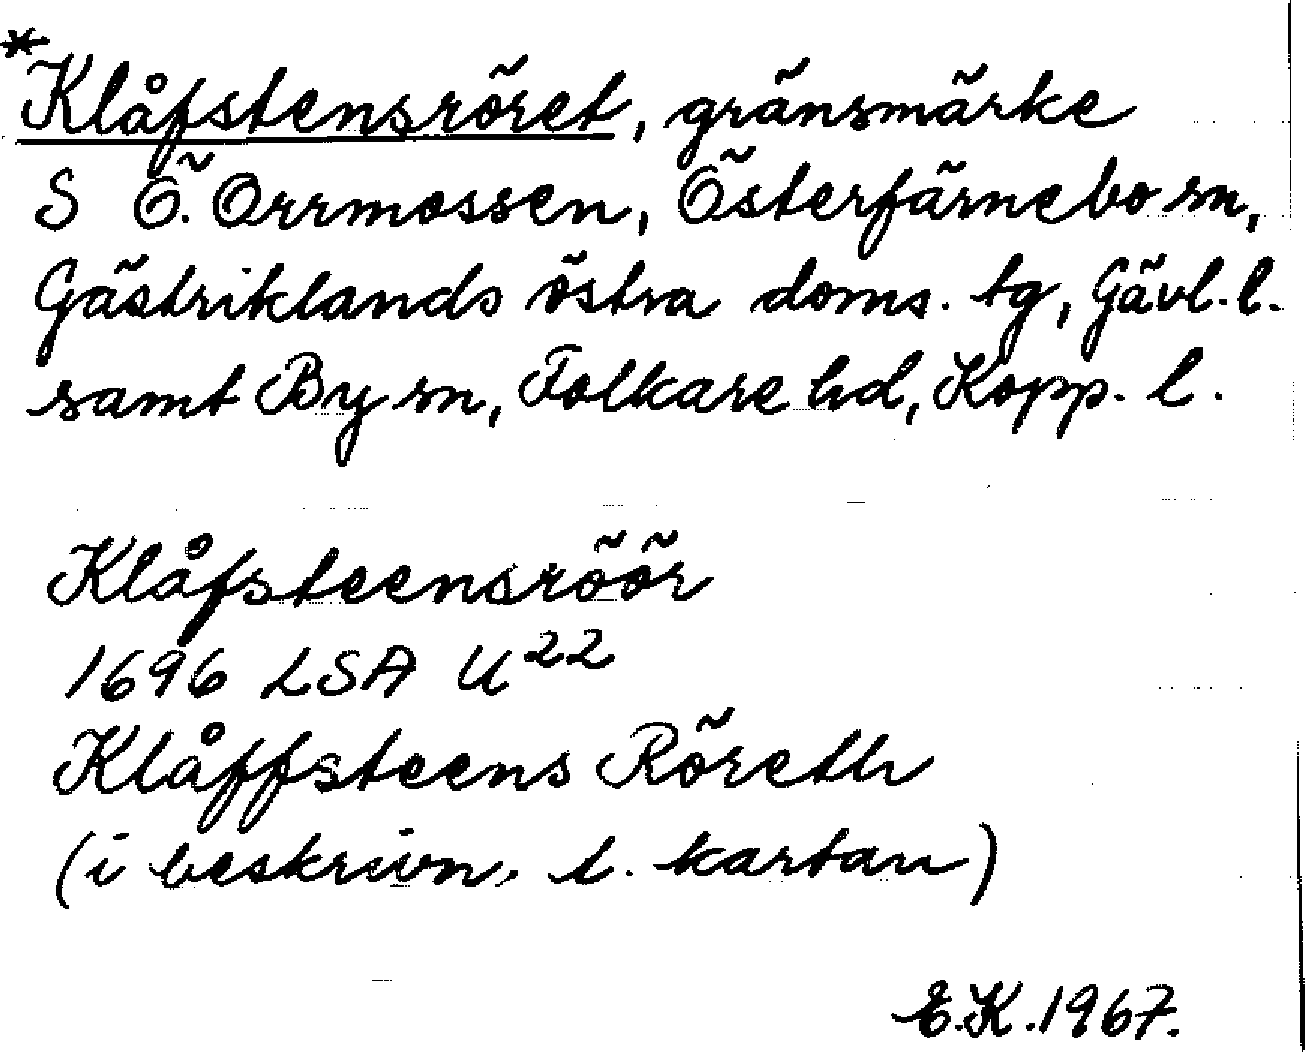 *Klåfstensröret, gränsmärke
S Ö. Orrmossen, Österfärnebo sn,
Gästriklands östra doms. tg, Gävl. l.
samt By sn, Folkare hd, Kopp. l.
Klåfsteensröör
1696 LSA U²²
Klåffsteens Röreth
(i beskrivn. t. kartan)
E.K. 1967.